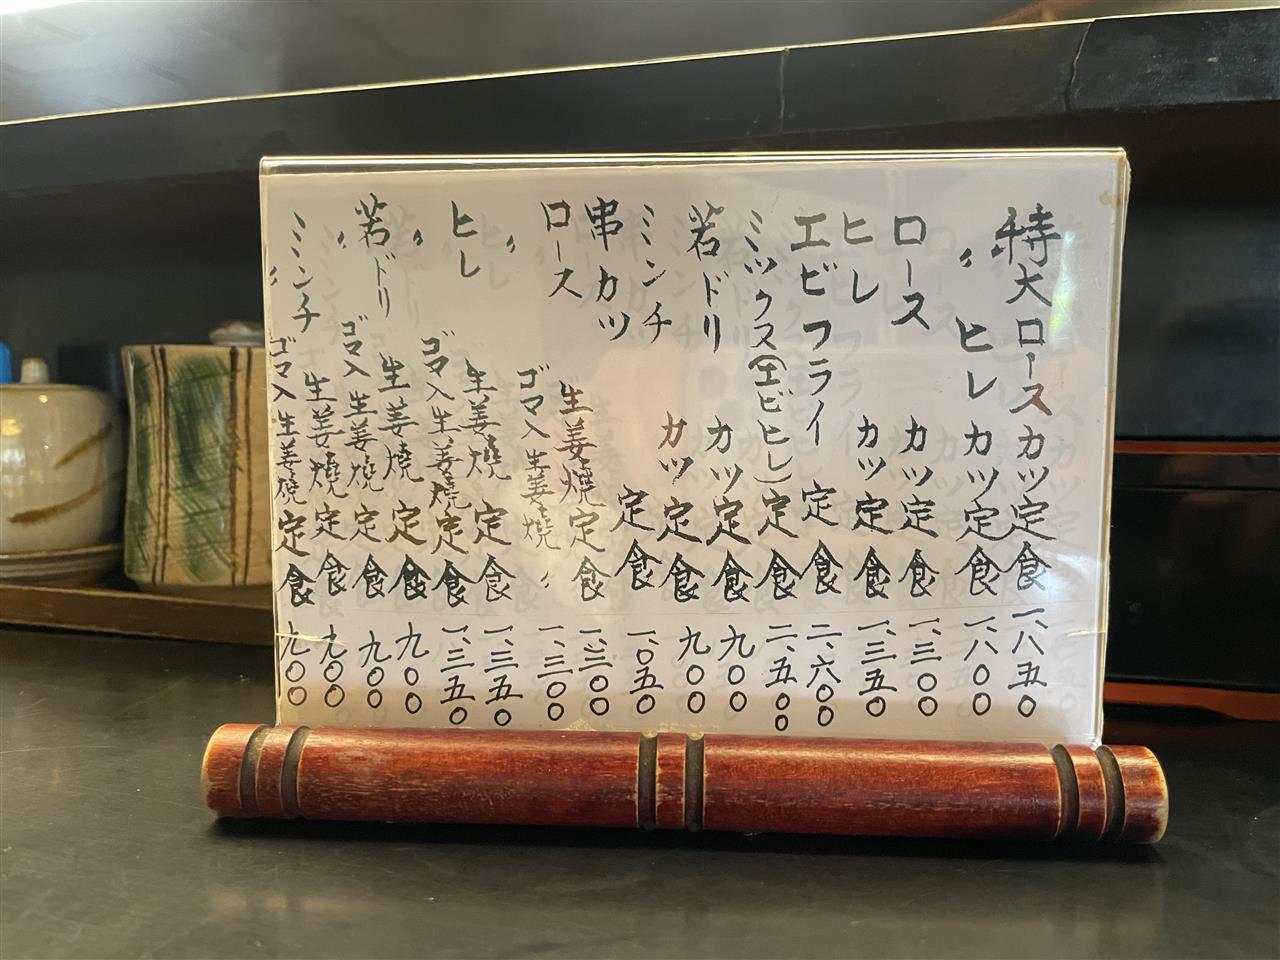 特大ロースカツ定食 一、八五〇
〃ヒレカツ定食 一、八〇〇
ロースカツ定食 一、三〇〇
ヒレカツ定食 一、三五〇
エビフライ定食 二、六〇〇
ミックス(エビヒレ)定食 二、五〇〇
若ドリカツ定食 九〇〇
ミンチカツ定食 九〇〇
串カツ定食 一、〇五〇
ロース生姜焼定食 一、三〇〇
〃ゴマ入生姜焼〃 一、三〇〇
ヒレ生姜焼定食 一、三五〇
〃ゴマ入生姜焼定食 一、三五〇
若ドリ生姜焼定食 九〇〇
〃ゴマ入生姜焼定食 九〇〇
ミンチ生姜焼定食 九〇〇
〃ゴマ入生姜焼定食 九〇〇